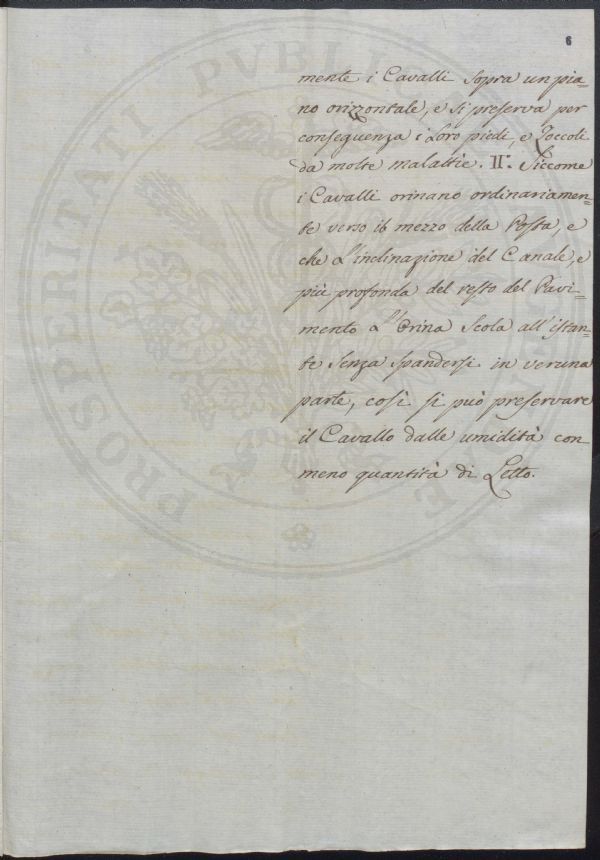 6
mente i Cavalli sopra un pia=
no orizzontale, e si preserva per
conseguenza i Loro piedi, e Zoccoli
da molte malattie. II.° Siccome
i Cavalli orinano ordinariamen=
te verso il mezzo della Posta, e
che L'inclinazione del Canale, e
più profonda del resto del Pavi=
mento L'Orina Scola all'istan=
te senza spandersi in veruna
parte, così si può preservare
il Cavallo dalle umidità con
meno quantità di Letto.
PROSPERITATI PVBLICAE